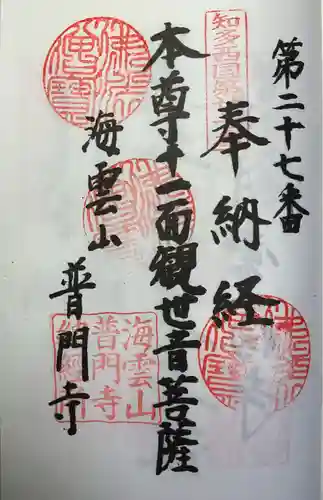 第二十七番
奉納経
知多西国
本尊十一面観世音菩薩
海雲山
普門寺
海雲山
普門寺